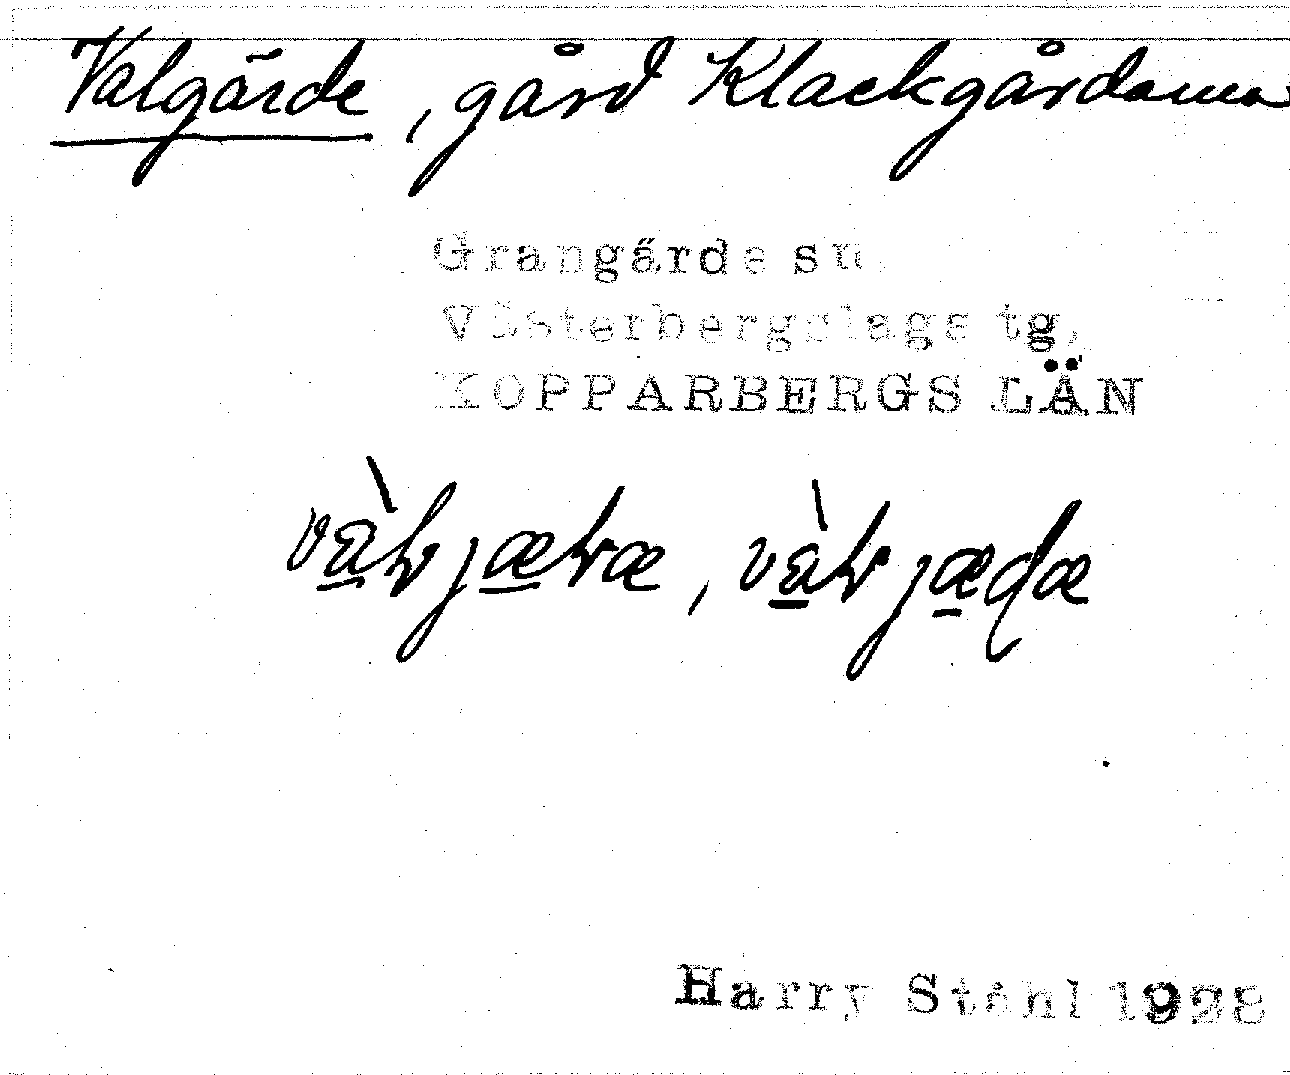 Valgärde, gård Klackgårdarna
Grangärde sn
Västerbergslags tg,
KOPPARBERGS LÄN
Harry Ståhl 1928